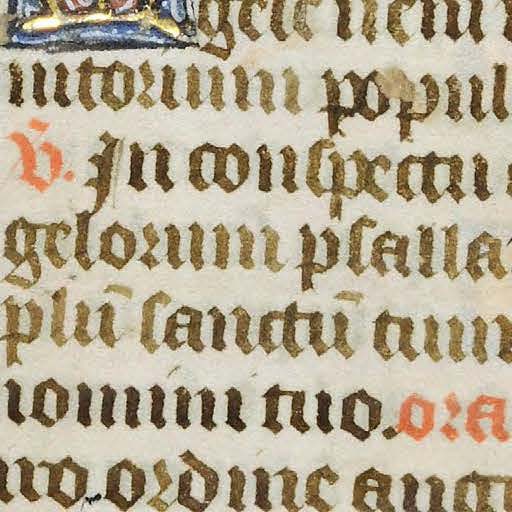 gele nem
intorium popul
V. In conspectu
gelorum psalla
plū sanctū tuum
nomini tuo. ora
ordine ang